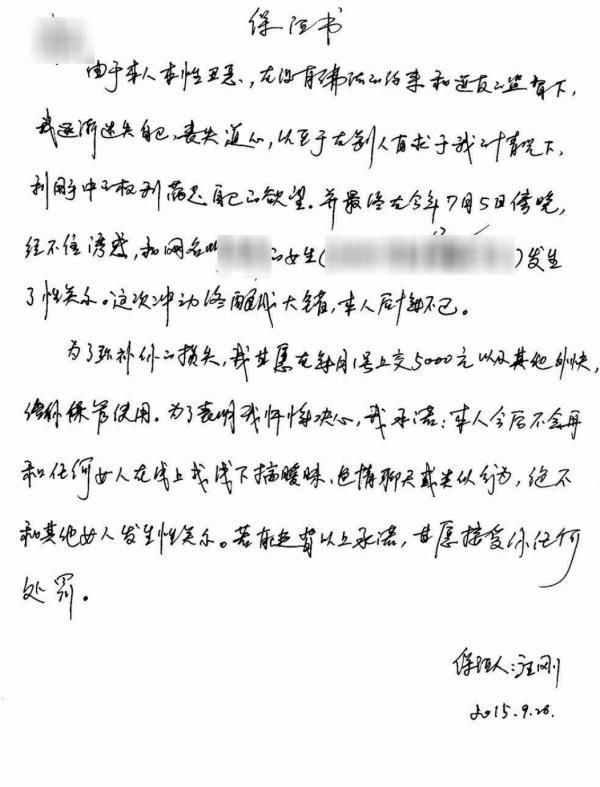 保证书
由于本人本性丑恶,在没有佛法的约束和道友的监督下,
我逐渐迷失自己、丧失道心,以至于在别人有求于我的情况下,
利用手中的权利满足自己的欲望。并最终在今年7月5日傍晚,
经不住诱惑,和网名叫 的女生( )发生
了性关系。这次冲动终酿成大错,本人后悔不已。
为了弥补你的损失,我甘愿在每月1号上交5000元以及其他外快,
给你保管使用。为了表明我忏悔决心,我承诺:本人今后不会再
和任何女人在线上或线下搞暧昧、色情聊天或类似行为,绝不
和其他女人发生性关系。若有违背以上承诺,甘愿接受你任何
处罚。
保证人:汪刚
2015.9.26.